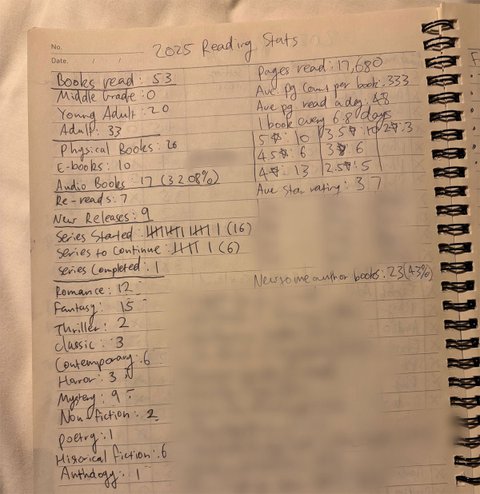 No.
2025 Reading Stats
Date. / /
Books read: 53
Middle Grade: 0
Young Adult: 20
Adult: 33
Physical Books: 26
E-books: 10
Audio Books: 17 (32.08%)
Re-reads: 7
New Releases: 9
Series Started: 卌 卌 卌 I (16)
Series to Continue: 卌 I (6)
Series Completed: 1
Romance: 12
Fantasy: 15
Thriller: 2
Classic: 3
Contemporary: 6
Horror: 3
Mystery: 9
Non-fiction: 2
Poetry: 1
Historical fiction: 6
Anthology: 1
Pages read: 17,680
Ave pg Count per book: 333
Ave pg read a day: 48
1 book every 6.8 days
5☆: 10 3.5☆: 10 2☆: 3
4.5☆: 6 3☆: 6
4☆: 13 2.5☆: 5
Ave Star rating: 3.7
author books: 23 (43%)